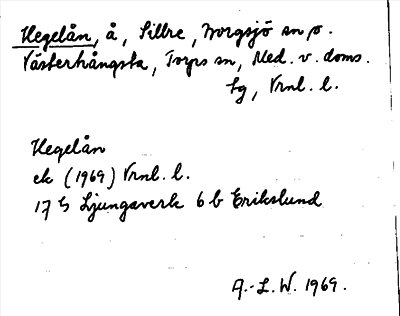 Hegelån, å, Sillre, Borgsjö sn, o.
Västerhångsta, Torps sn, Med. v. doms.
tg, Vrnl. l.
Hegelån
ek (1969) Vrnl. l.
17 G Ljungaverk 6 b Erikslund
A.-L.W. 1969.